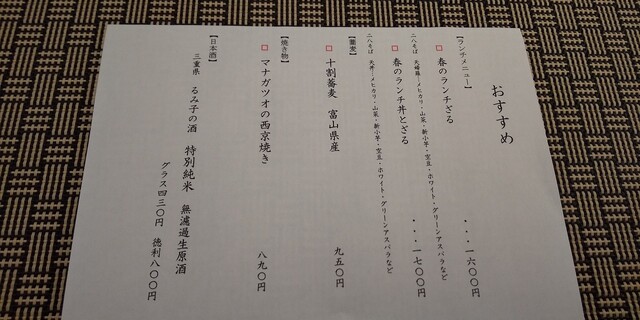 おすすめ
【ランチメニュー】
□ 春のランチざる ・・・一六〇〇円
二八そば 天婦羅ーメヒカリ・山菜・新小芋・空豆・ホワイト・グリーンアスパラなど
□ 春のランチ丼とざる ・・・一七〇〇円
二八そば 天丼ーメヒカリ・山菜・新小芋・空豆・ホワイト・グリーンアスパラなど
【蕎麦】
□ 十割蕎麦 富山県産 九五〇円
【焼き物】
□ マナガツオの西京焼き 八九〇円
【日本酒】
三重県 るみ子の酒 特別純米 無濾過生原酒
グラス四三〇円 徳利八〇〇円